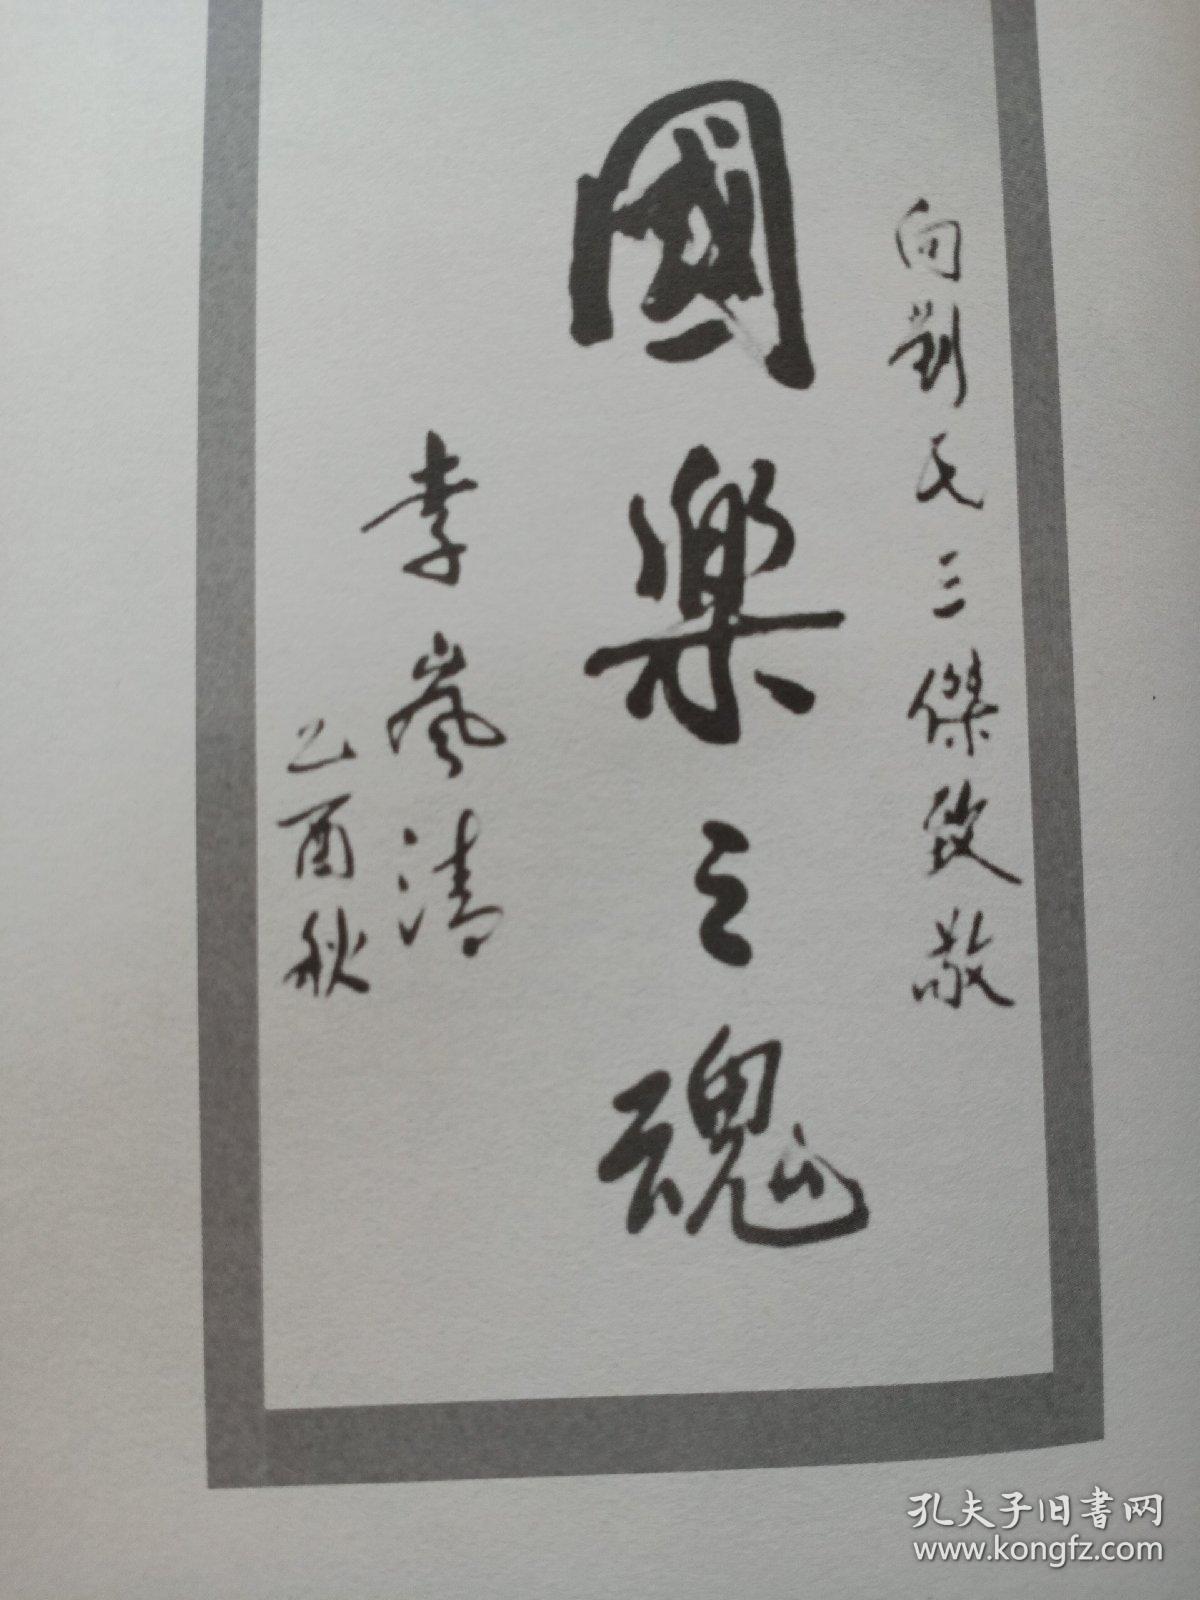 向劉氏三傑致敬
國樂之魂
李嵐清
乙酉秋
孔夫子旧書网
www.kongfz.com